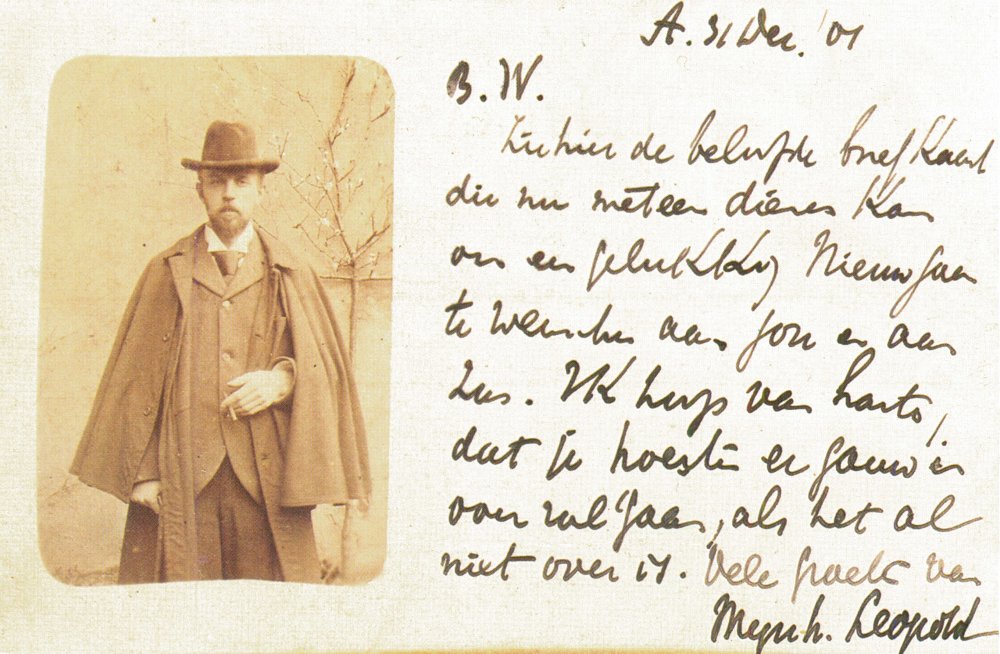 A. 31 Dec. '01
B. W.
Ziehier de beloofde briefkaart
die nu meteen dienen kan
om een gelukkig Nieuwjaar
te wenschen aan jou en aan
Zus. Ik hoop van harte,
dat je hoesten er gauw
over zal gaan, als het al
niet over is. Vele groeten van
Mynh. Leopold